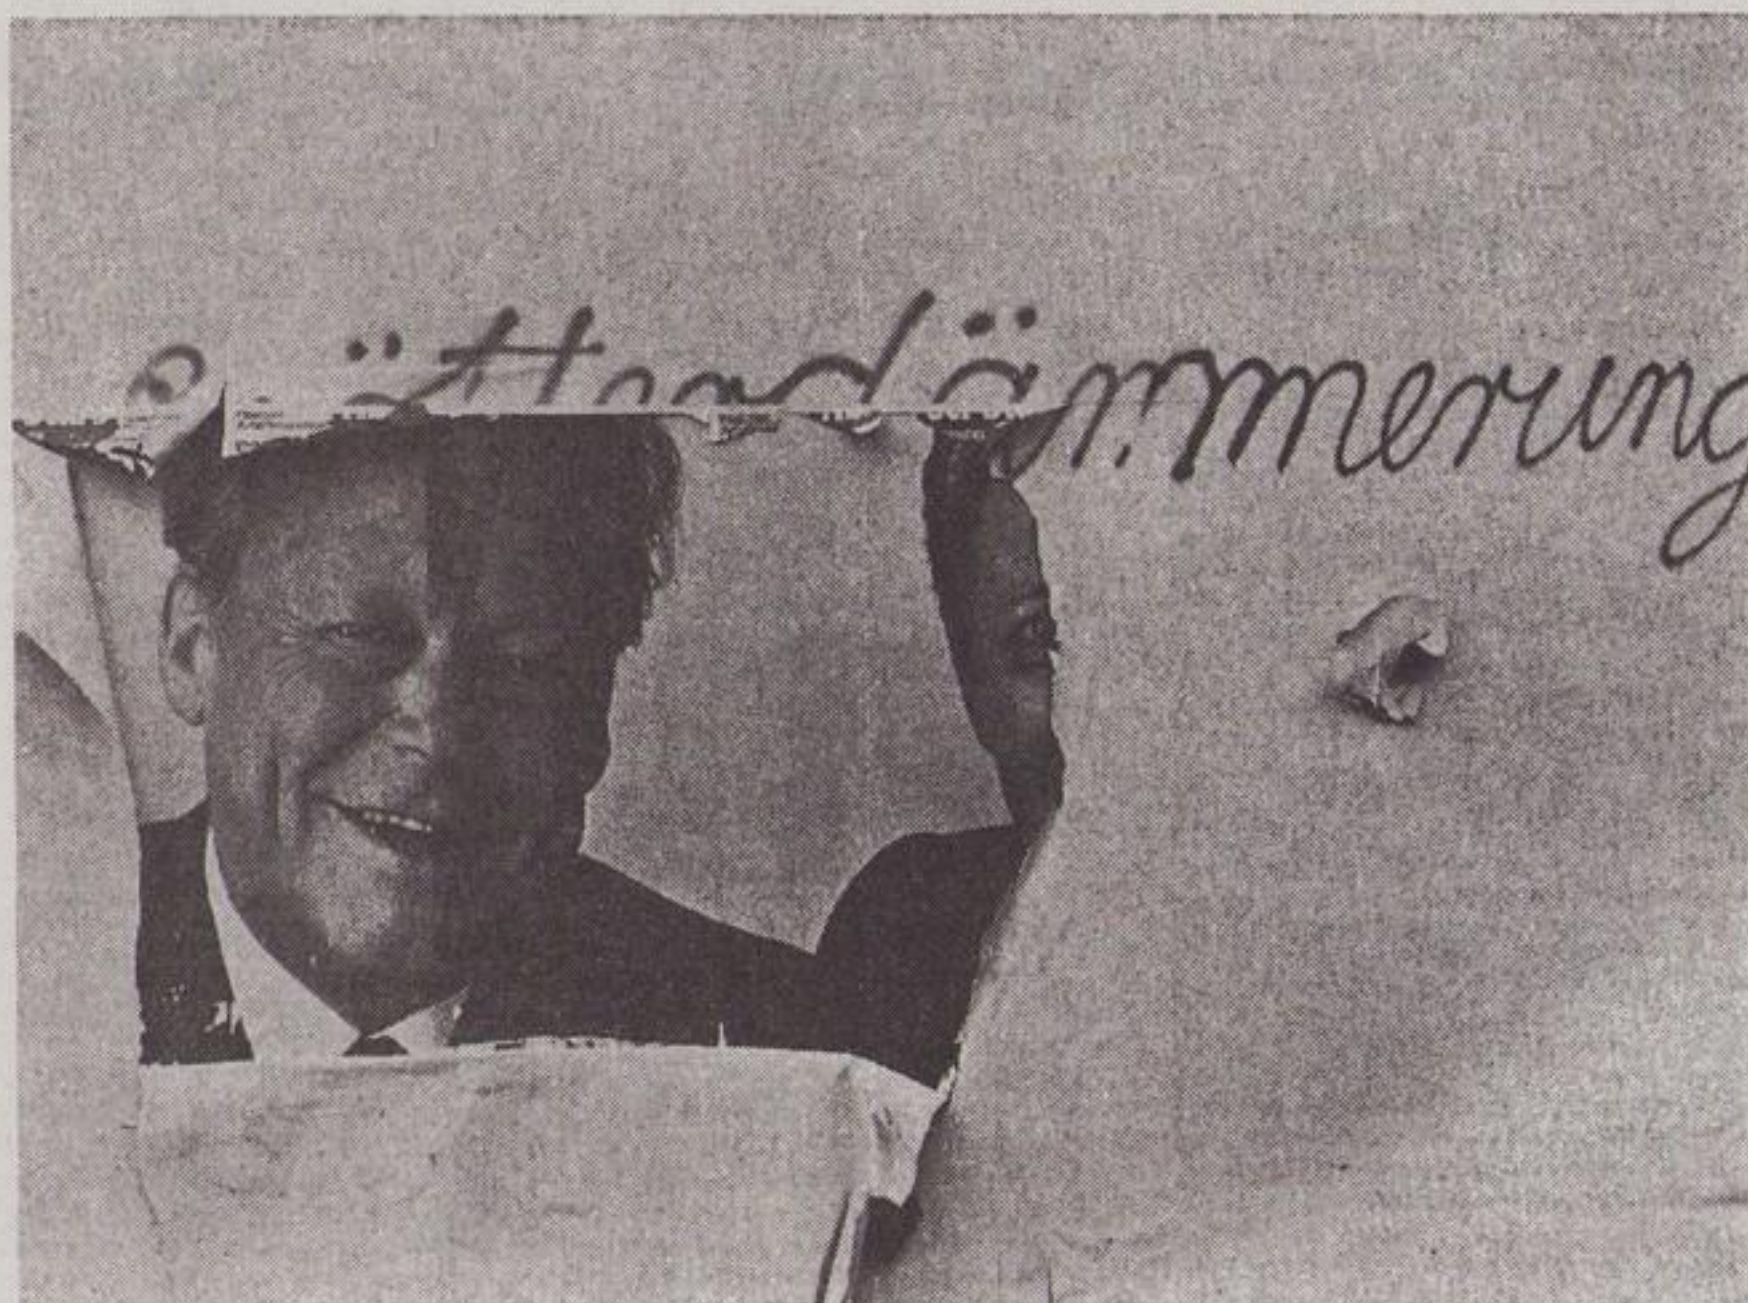 Götterdämmerung